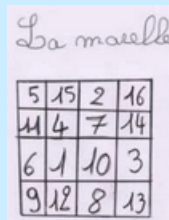 La marelle
5 15 2 16
11 4 7 14
6 1 10 3
9 12 8 13